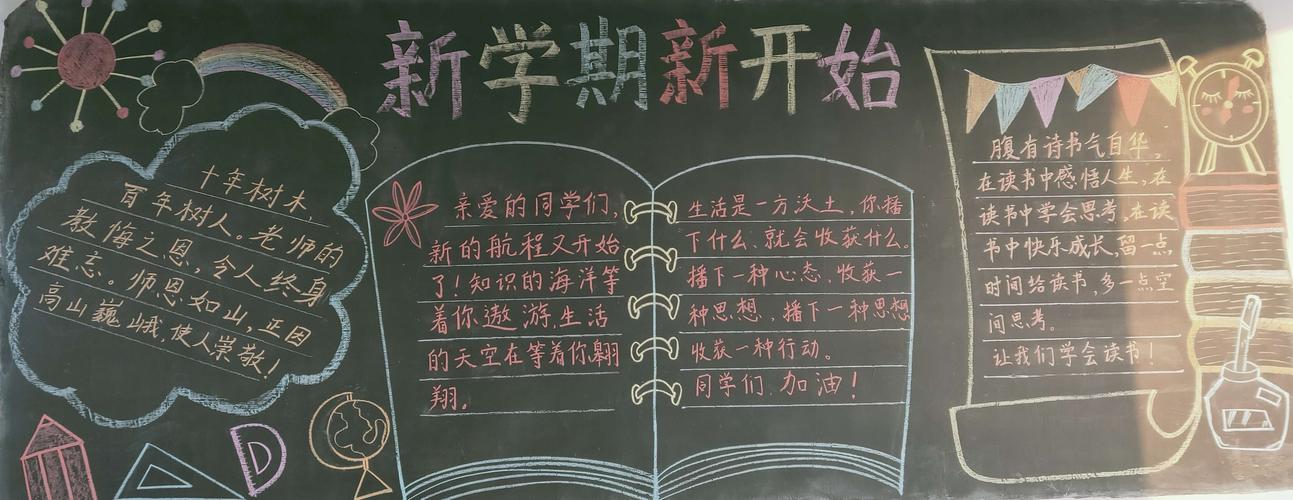 新学期新开始
十年树木，
百年树人。老师的
教悔之恩，令人终身
难忘。师恩如山，正因
高山巍峨，使人崇敬！
亲爱的同学们，
新的航程又开始
了！知识的海洋等
着你遨游，生活
的天空在等着你翱
翔。
生活是一方沃土，你播
下什么，就会收获什么。
播下一种心态，收获一
种思想，播下一种思想
收获一种行动。
同学们，加油！
腹有诗书气自华，
在读书中感悟人生，在
读书中学会思考，在读
书中快乐成长，留一点
时间给读书，多一点空
间思考。
让我们学会读书！